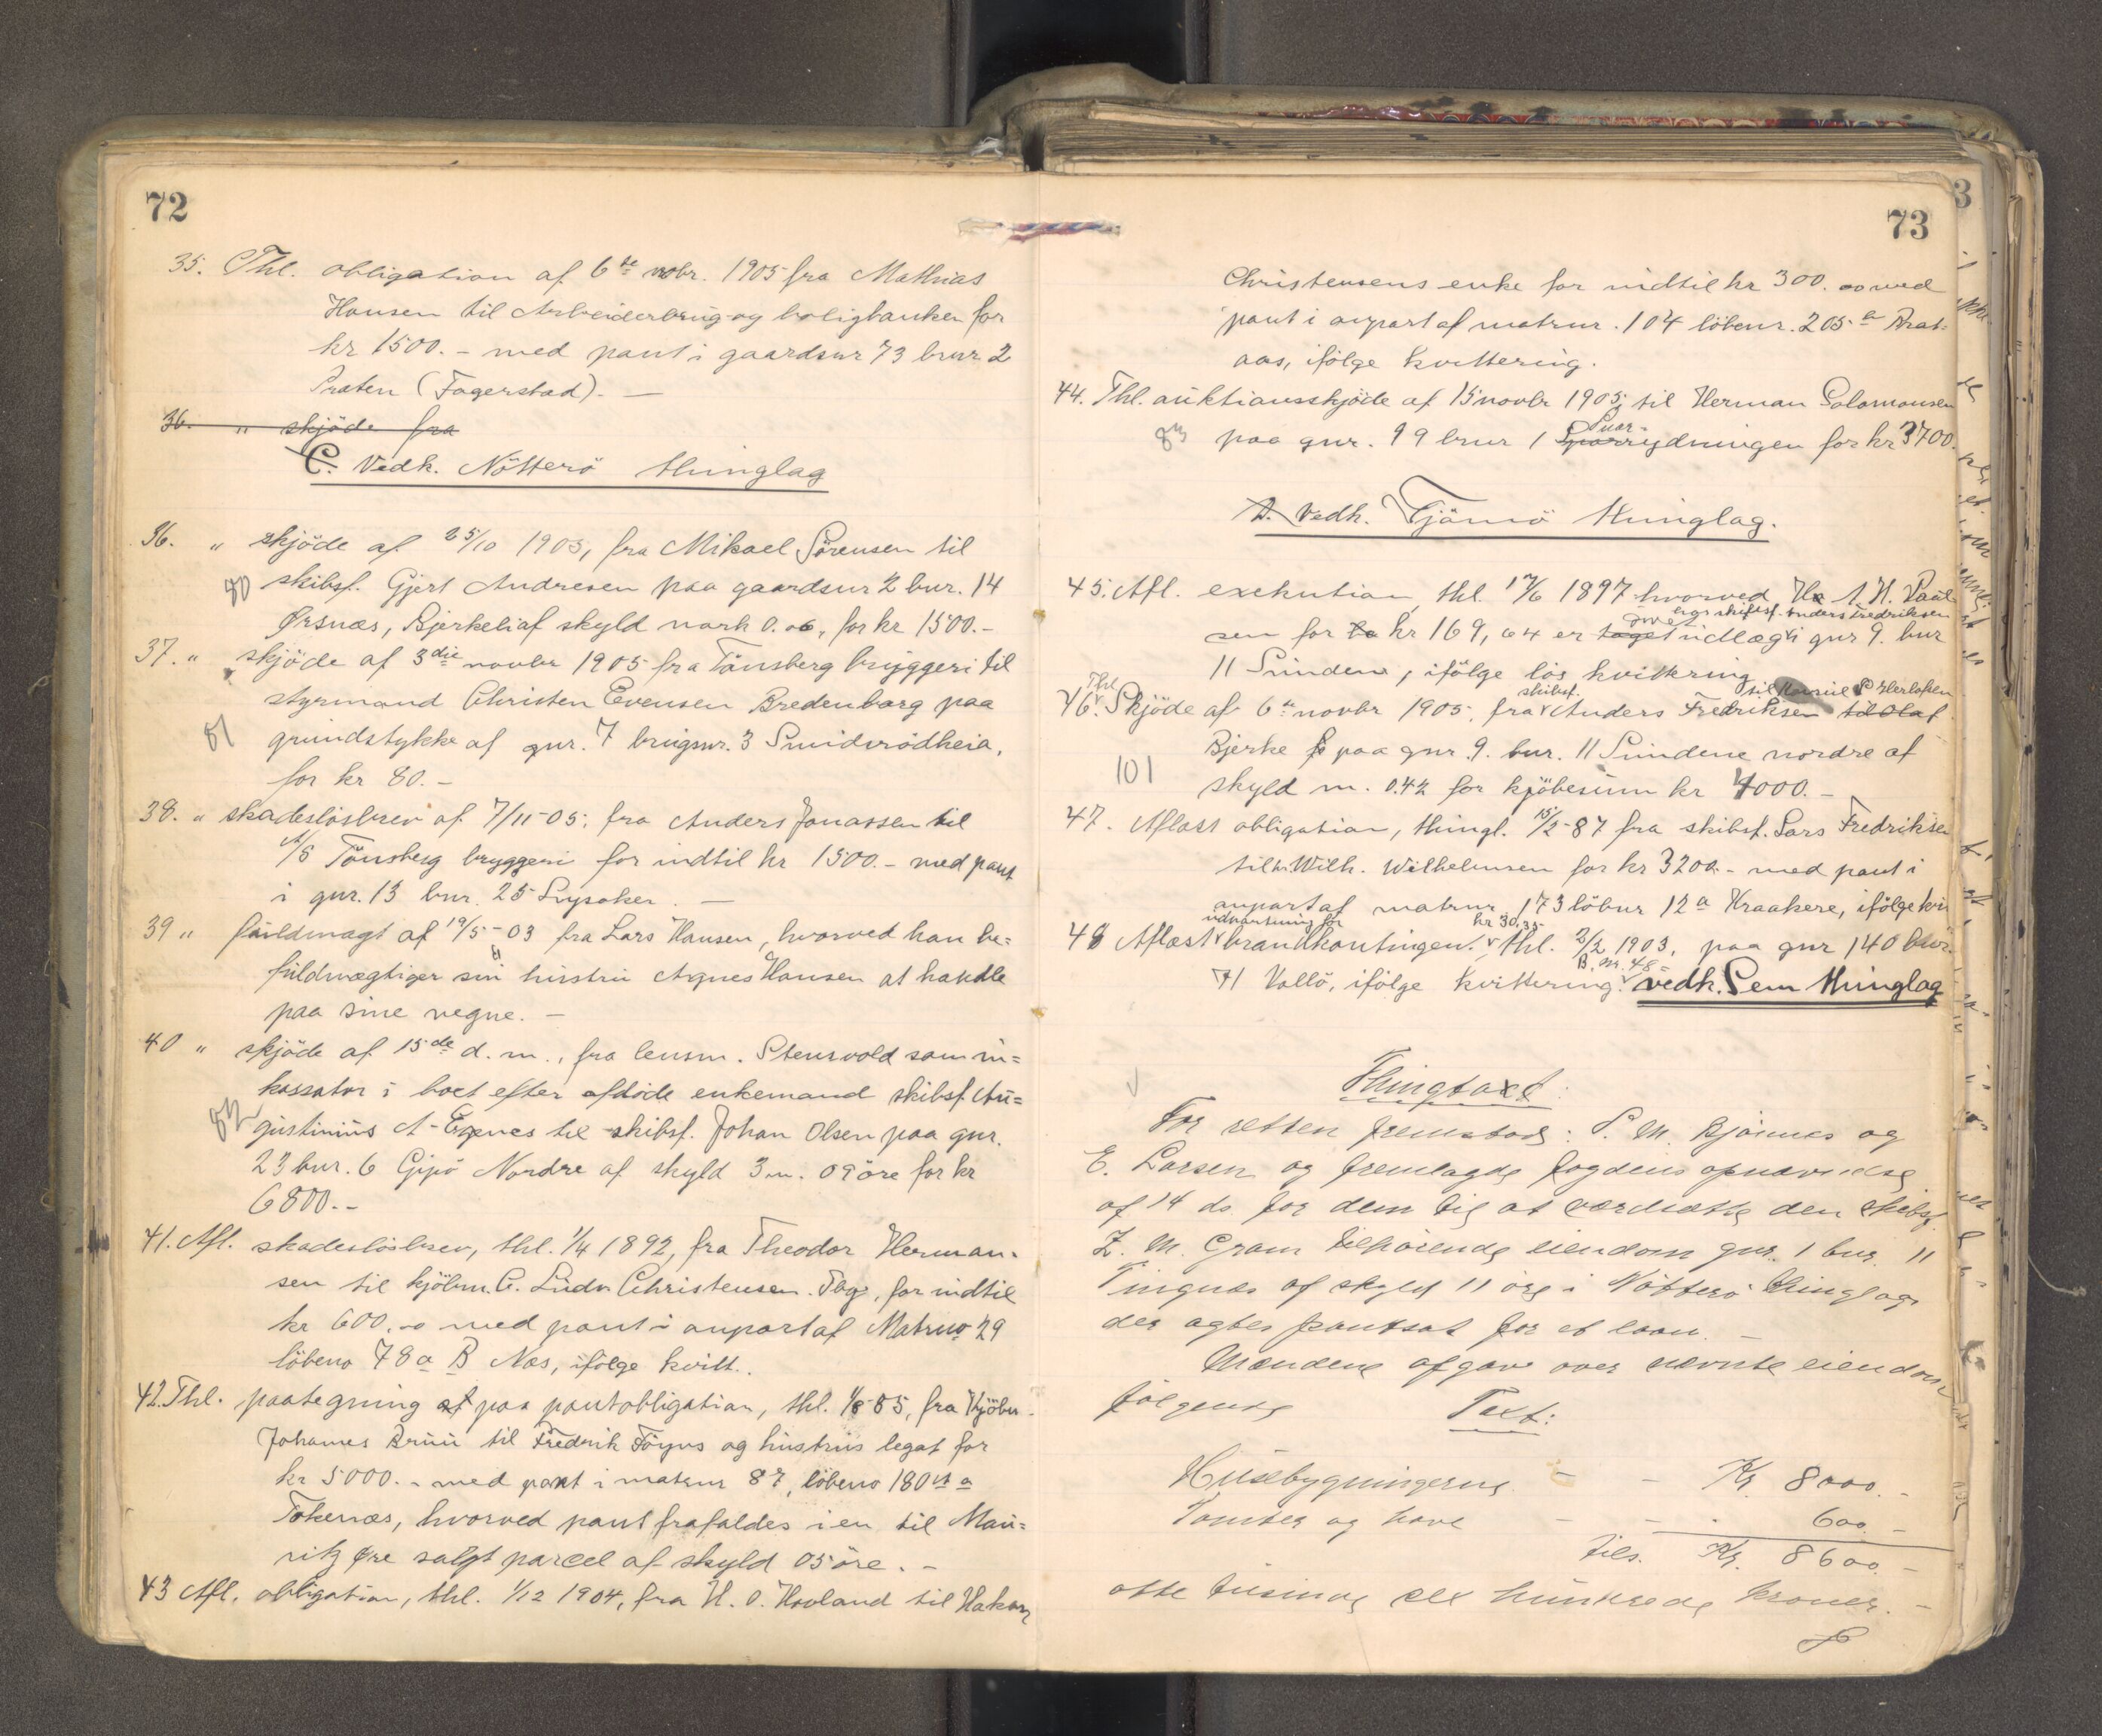 72
35. Thl. obligation af 6te nobr. 1905 fra Mathias
Hansen til Arbeiderbrug og boligbanken for
kr 1500.- med pant i gaardsnr 73 brnr 2
Præten (Fagerstad). —
36. " skjöde fra
C. Vedk. Nötterö thinglag
36. " skjöde af 25/10 1905, fra Mikael Sörensen til
skibsf. Gjert Andresen paa gaardsnr 2 bnr. 14
Ørsnæs, Bjerkeli af skyld mark 0.06, for kr 1500.-
37. " skjöde af 3die novbr 1905 fra Tönsberg bryggeri til
styrmand Christen Evensen Bredenborg paa
81 grundstykke af gnr. 7 brugsnr. 3 Smidsrödheia,
for kr 80.-
38. " skadeslösbrev af 7/11-05, fra Anders Jonassen til
A/S Tönsberg bryggeri for indtil kr 1500.- med pant
i gnr. 13 bnr. 25 Lysaker. —
39 " fuldmagt af 19/5-03 fra Lars Hansen, hvorved han be=
fuldmægtiger sin hustru Agnes Hansen at handle
paa sine vegne. —
40 " skjöde af 15de d. m., fra lensm. Stensvold som in=
kassator i boet efter afdöde enkemand skibsf. Au=
gustinius A. Egenes til skibsf. Johan Olsen paa gnr.
23 bnr. 6 Gipö Nordre af skyld 3 m. 09 öre for kr
6800.-
41. Afl. skadeslösbrev, thl. 1/4 1892, fra Theodor Herman-
sen til kjöbm. C. Ludv. Christensen. Tbg, for indtil
kr 600.00 med pant i anpart af Matrno 29
löbeno 78a B Næs, ifölge kvitt..
42. Thl. paategning af paa pantobligation, thl. 1/8-85, fra Kjöbm.
Johannes Bruu til Fredrik Föyns og hustrus legat for
kr 5000.- med pant i matrnr 87, löbeno 180
Tokenæs, hvorved pant frafaldes i en til Mau=
ritz Øre solgt parcel af skyld 05 öre. —
43 Afl. obligation, thl. 1/12 1904, fra H. O. Hovland til Hakon
73
Christensens enke for indtil kr 300.00 med
pant i anpart af matrnr. 104 löbenr. 205 a Brat-
aas, ifölge kvittering.
44. Thl. auktionsskjöde af 15 novbr 1905, til Herman Salomonsen
Snar-
paa gnr. 99 bnr 1 rydningen for kr 3700.
D. Vedk. Tjömö thinglag.
45. Afl. exekution, thl. 17/6 1897 hvorved Hr A. H. Paul
givet hos skibsf. Anders Fredriksen
sen for kr 169,64 er taget udlæg i gnr 9. bnr
11 Sundene, ifölge lös kvittering
Thl skibsf. til Konsul P Herlofsen
46. Skjöde af 6te novbr 1905, fra Anders Fredriksen til Olaf
Bjerke paa gnr. 9. bnr. 11 Sundene nordre af
101 skyld m. 0.42 for kjöbesum kr 4000.-
47. Aflæst obligation, thingl. 15/2-87 fra skibsf. Lars Fredriksen
til hr. Wilh. Wilhelmsen for kr 3200.- med pant i
anpart af matrnr 173 löbnr 12a Kraakere, ifölge kvi
udpantning for kr 30.35
48 Aflæst brandkontingen., thl. 2/2 1903, paa gnr 140 bnr.
B. nr. 48
41 Vallö, ifölge kvittering. vedk. Sem thinglag
Thingtaxt:
For retten fremstod: S. M. Bjönnes og
E. Larsen og fremlagde fogdens opnævnelse
af 14 ds. for dem til at værdsætte den skibsf.
Z. M. Gram tilhörende eiendom gnr. 1 bnr. 11
Tingnæs af skyld 11 öre i Nötterö thinglag
der agtes pantsat for et laan. —
Mændene afgav over nævnte eiendom
fölgende Taxt:
Husebygningerne - - Kr. 8000.-
Tomter og have - - 600.-
tils. Kr. 8600.-
otte tusinde sex hundrede kroner. -